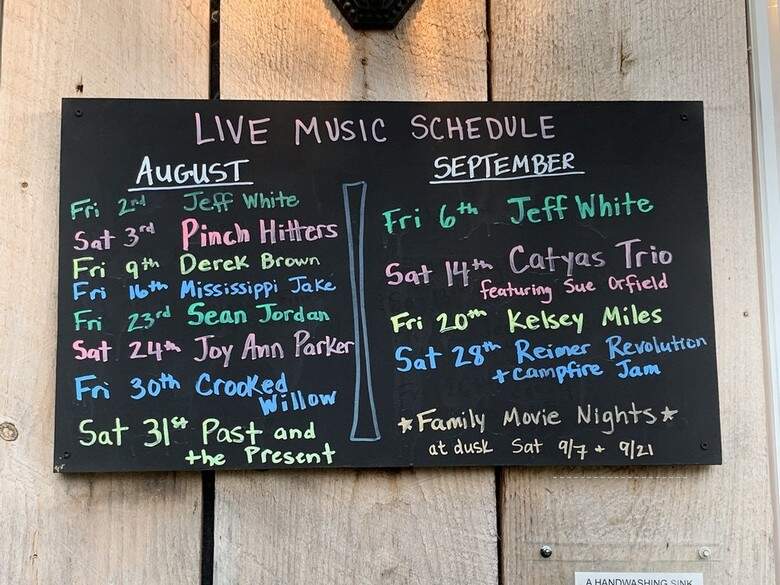 LIVE MUSIC SCHEDULE
AUGUST
Fri 2nd Jeff White
Sat 3rd Pinch Hitters
Fri 9th Derek Brown
Fri 16th Mississippi Jake
Fri 23rd Sean Jordan
Sat 24th Joy Ann Parker
Fri 30th Crooked
Willow
Sat 31st Past and
the Present
SEPTEMBER
Fri 6th Jeff White
Sat 14th Catyas Trio
featuring Sue Orfield
Fri 20th Kelsey Miles
Sat 28th Reimer Revolution
+ Campfire Jam
★ Family Movie Nights ★
at dusk Sat 9/7 + 9/21
A HANDWASHING SINK